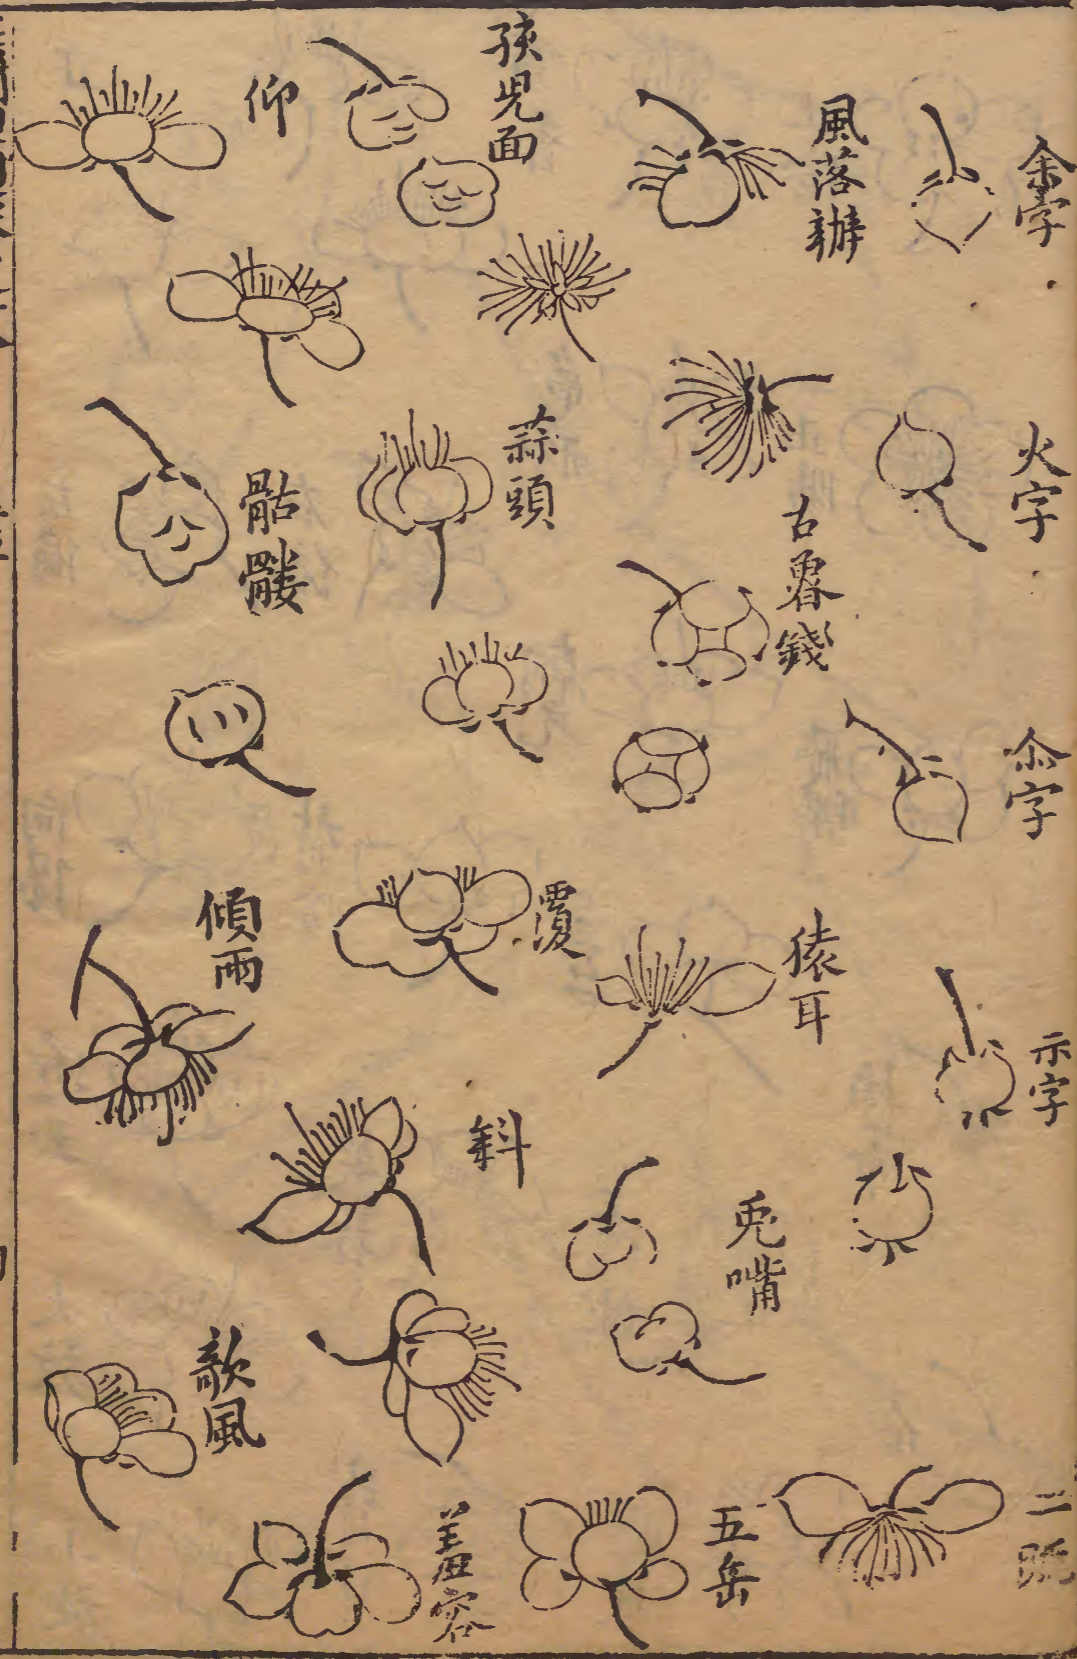 余字
火字
尒字
示字
二疏
風落辦
古魯錢
猿耳
兎嘴
五岳
孩児面
蒜頭
覆
斜
羞容
仰
骷髏
傾雨
歆風